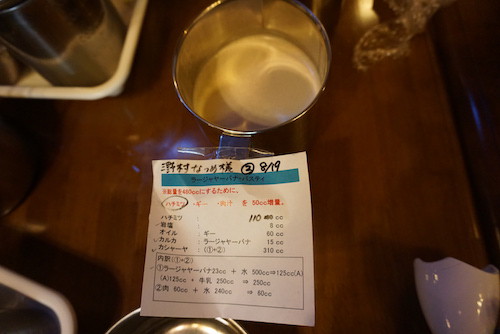 澤村なつめ様 ② 8/19
ラージャヤーパナ・バスティ
※総量を480ccにするために、
ハチミツ ・ギー ・肉汁 を 50cc増量。
ハチミツ : 110 cc
岩塩 : 5 cc
オイル : ギー 60 cc
カルカ : ラージャヤーパナ 15 cc
カシャーヤ : (①+②) 310 cc
内訳(①+②)
①ラージャヤーパナ23cc + 水 500cc⇒125cc(A)
(A)125cc + 牛乳 250cc ⇒ 250cc
②肉 60cc + 水 240cc ⇒ 60cc